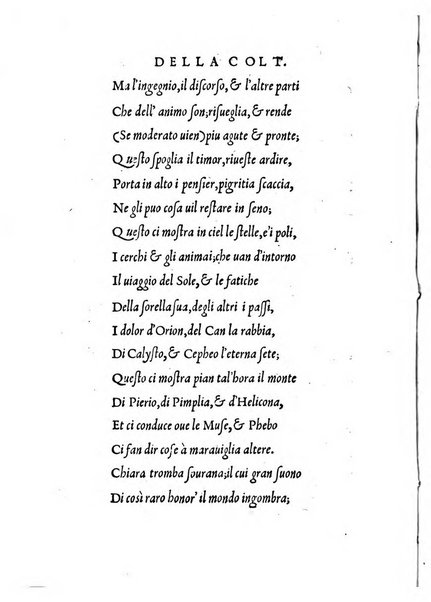 DELLA COLT.
Ma l'ingegnio, il diſcorſo, & l'altre parti
Che dell' animo ſon; riſueglia, & rende
(Se moderato uien) piu agute & pronte;
Queſto ſpoglia il timor, riueſte ardire,
Porta in alto i penſier, pigritia ſcaccia,
Ne gli puo coſa uil reſtare in ſeno;
Queſto ci moſtra in ciel le ſtelle, e'i poli,
I cerchi & gli animai; che uan d'intorno
Il uiaggio del Sole, & le fatiche
Della ſorella ſua, degli altri i paſſi,
I dolor d'Orion, del Can la rabbia,
Di Calyſto, & Cepheo l'eterna ſete;
Queſto ci moſtra pian tal'hora il monte
Di Pierio, di Pimplia, & d'Helicona,
Et ci conduce oue le Muſe, & Phebo
Ci fan dir coſe à marauiglia altere.
Chiara tromba ſourana; il cui gran ſuono
Di coſì raro honor' il mondo ingombra;